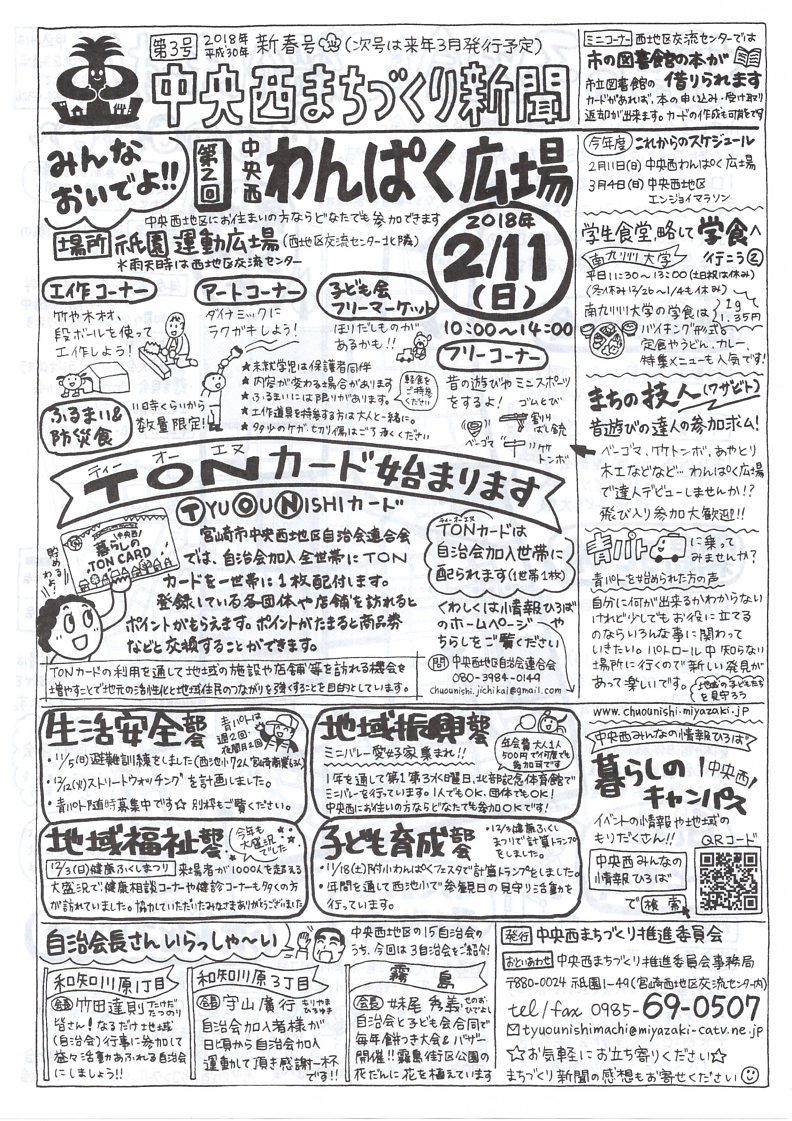 第3号 2018年 平成30年 新春号(次号は来年3月発行予定)
中央西まちづくり新聞
みんな
おいでよ!!
第2回 中央西 わんぱく広場
中央西地区にお住まいの方ならどなたでも参加できます
場所 祇園運動広場(西地区交流センター北隣)
*雨天時は西地区交流センター
2018年
2/11
(日)
10:00〜14:00
工作コーナー
竹や木材、
段ボールを使って
工作しよう!
アートコーナー
ダイナミックに
ラクガキしよう!
子ども会
フリーマーケット
ほりだしものが
あるかも!!
フリーコーナー
昔の遊びやミニスポーツ
をするよ!
ゴムとび
割りばし銃
ベーゴマ
竹トンボ
ふるまい&
防災食
11時くらいから
数量限定!
★未就学児は保護者同伴
★内容が変わる場合があります
★ふるまいには限りがあります。
★工作道具を持参する方は大人と一緒に。
★多少のケガ、切り傷はご了承ください
軽食を
ご持参
ください
ティー オー エヌ
TONカード始まります
TYUOUNISHIカード
貯めるわよ!
中央西
暮らしの
TON CARD
宮崎市中央西地区自治会連合会
では、自治会加入全世帯にTON
カードを一世帯に1枚配付します。
登録している各団体や店舗を訪れると
ポイントがもらえます。ポイントがたまると商品券
などと交換することができます。
ティーオーエヌ
TONカードは
自治会加入世帯に
配られます(1世帯1枚)
くわしくは情報ひろば
のホームページや
ちらしをご覧ください
問 中央西地区自治会連合会
080-3984-0149
chuounishi.jichikai@gmail.com
TONカードの利用を通して地域の施設や店舗等を訪れる機会を
増やすことで地元の活性化と地域住民のつながりを強くすることを目的としています。
生活安全部
青パトは
週2回
夜間月2回
・11/5(日)避難訓練をしました
・12/12(火)ストリートウォッチングを計画しました。
・青パト随時募集中です☆ 別枠もご覧ください。
地域振興部
ミニバレー愛好家集まれ!!
年会費大人1人
500円で何度でも
参加可です
1年を通して第1第3水曜日、北部記念体育館で
ミニバレーを行っています。1人でもOK、団体でもOK!
中央西にお住いの方ならどなたでも参加OKです!
地域福祉部
今年も
大盛況
でした
12/3(日)健康ふくしまつり 来場者が1000人を超える
大盛況で健康相談コーナーや健診コーナーも多くの方
が訪れていました。協力していただいたみなさまありがとうございました
子ども育成部
・12/3健康ふくし
まつりで計算トランプ
をしました。
・11/18(土)附小わんぱくフェスタで計算トランプをしました。
・年間を通して西池小で参観日の見守り活動を
行っています。
自治会長さんいらっしゃ〜い
中央西地区の15自治会の
うち、今回は3自治会をご紹介!
和知川原1丁目
会長 竹田達則 たけだ たつのり
皆さん!なるだけ地域
(自治会)行事に参加して
益々活動あふれる自治会
にしましょう!!
和知川原3丁目
会長 守山廣行 もりやま ひろゆき
自治会加入者様が
日頃から自治会加入
運動して頂き感謝一杯
です!!
霧島
会長 妹尾秀義 せのお ひでよし
自治会と子ども会合同で
毎年餅つき大会&バザー
開催!!霧島街区公園の
花だんに花を植えています
ミニコーナー 西地区交流センターでは
市の図書館の本が
借りられます
市立図書館の
カードがあれば、本の申し込み・受け取り
返却が出来ます。カードの作成も可能です
今年度 これからのスケジュール
2月11日(日) 中央西わんぱく広場
3月4日(日) 中央西地区
エンジョイマラソン
学生食堂、略して学食へ
行こう②
南九州大学
平日11:30〜13:00(土日祝は休み)
(冬休み12/26〜1/4も休み)
南九州大学の学食は
1g
1.35円
バイキング形式。
定食やうどん、カレー、
特集メニューも人気です!
まちの技人(ワザビト)
昔遊びの達人の参加求ム!
ベーゴマ、竹トンボ、あやとり
木工などなど…わんぱく広場
で達人デビューしませんか!?
飛び入り参加大歓迎!!
青パトに乗って
みませんか?
青パトを始められた方の声
自分に何が出来るかわからない
けれど少しでもお役に立てる
のならいろんな事に関わって
いきたい。パトロール中知らない
場所に行くので新しい発見が
あって楽しいです。
地域の子どもたちを
見守ろう
www.chuounishi-miyazaki.jp
中央西みんなの情報ひろば
暮らしの 中央西
キャンパス
イベントの情報や地域の
もりだくさん!!
QRコード
中央西みんなの
情報ひろば
で検索
発行 中央西まちづくり推進委員会
おといあわせ 中央西まちづくり推進委員会事務局
〒880-0024 祇園1-49(宮崎西地区交流センター内)
tel/fax 0985-69-0507
✉tyuounishimachi@miyazaki-catv.ne.jp
☆お気軽にお立ち寄りください☆
まちづくり新聞の感想もお寄せください